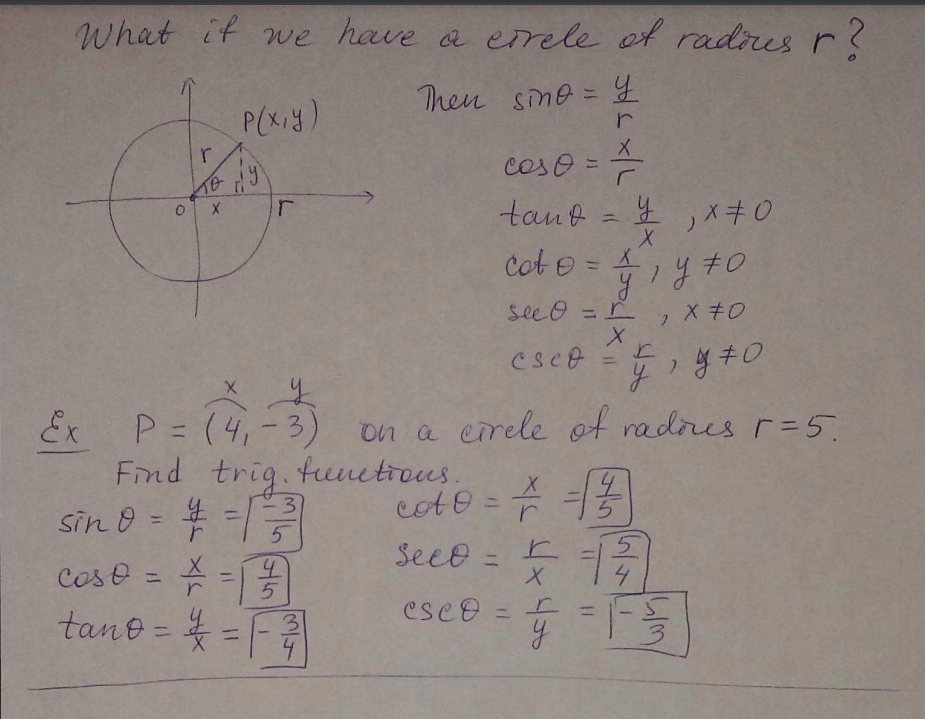 What if we have a circle of radius r?
P(x,y)
r
θ
y
0
x
r
Then sinθ = y/r
cosθ = x/r
tanθ = y/x , x≠0
cotθ = x/y , y≠0
secθ = r/x , x≠0
cscθ = r/y , y≠0
x y
Ex P = (4, -3) on a circle of radius r=5.
Find trig. functions.
sinθ = y/r = -3/5
cosθ = x/r = 4/5
tanθ = y/x = -3/4
cotθ = x/r = 4/5
secθ = r/x = 5/4
cscθ = r/y = -5/3